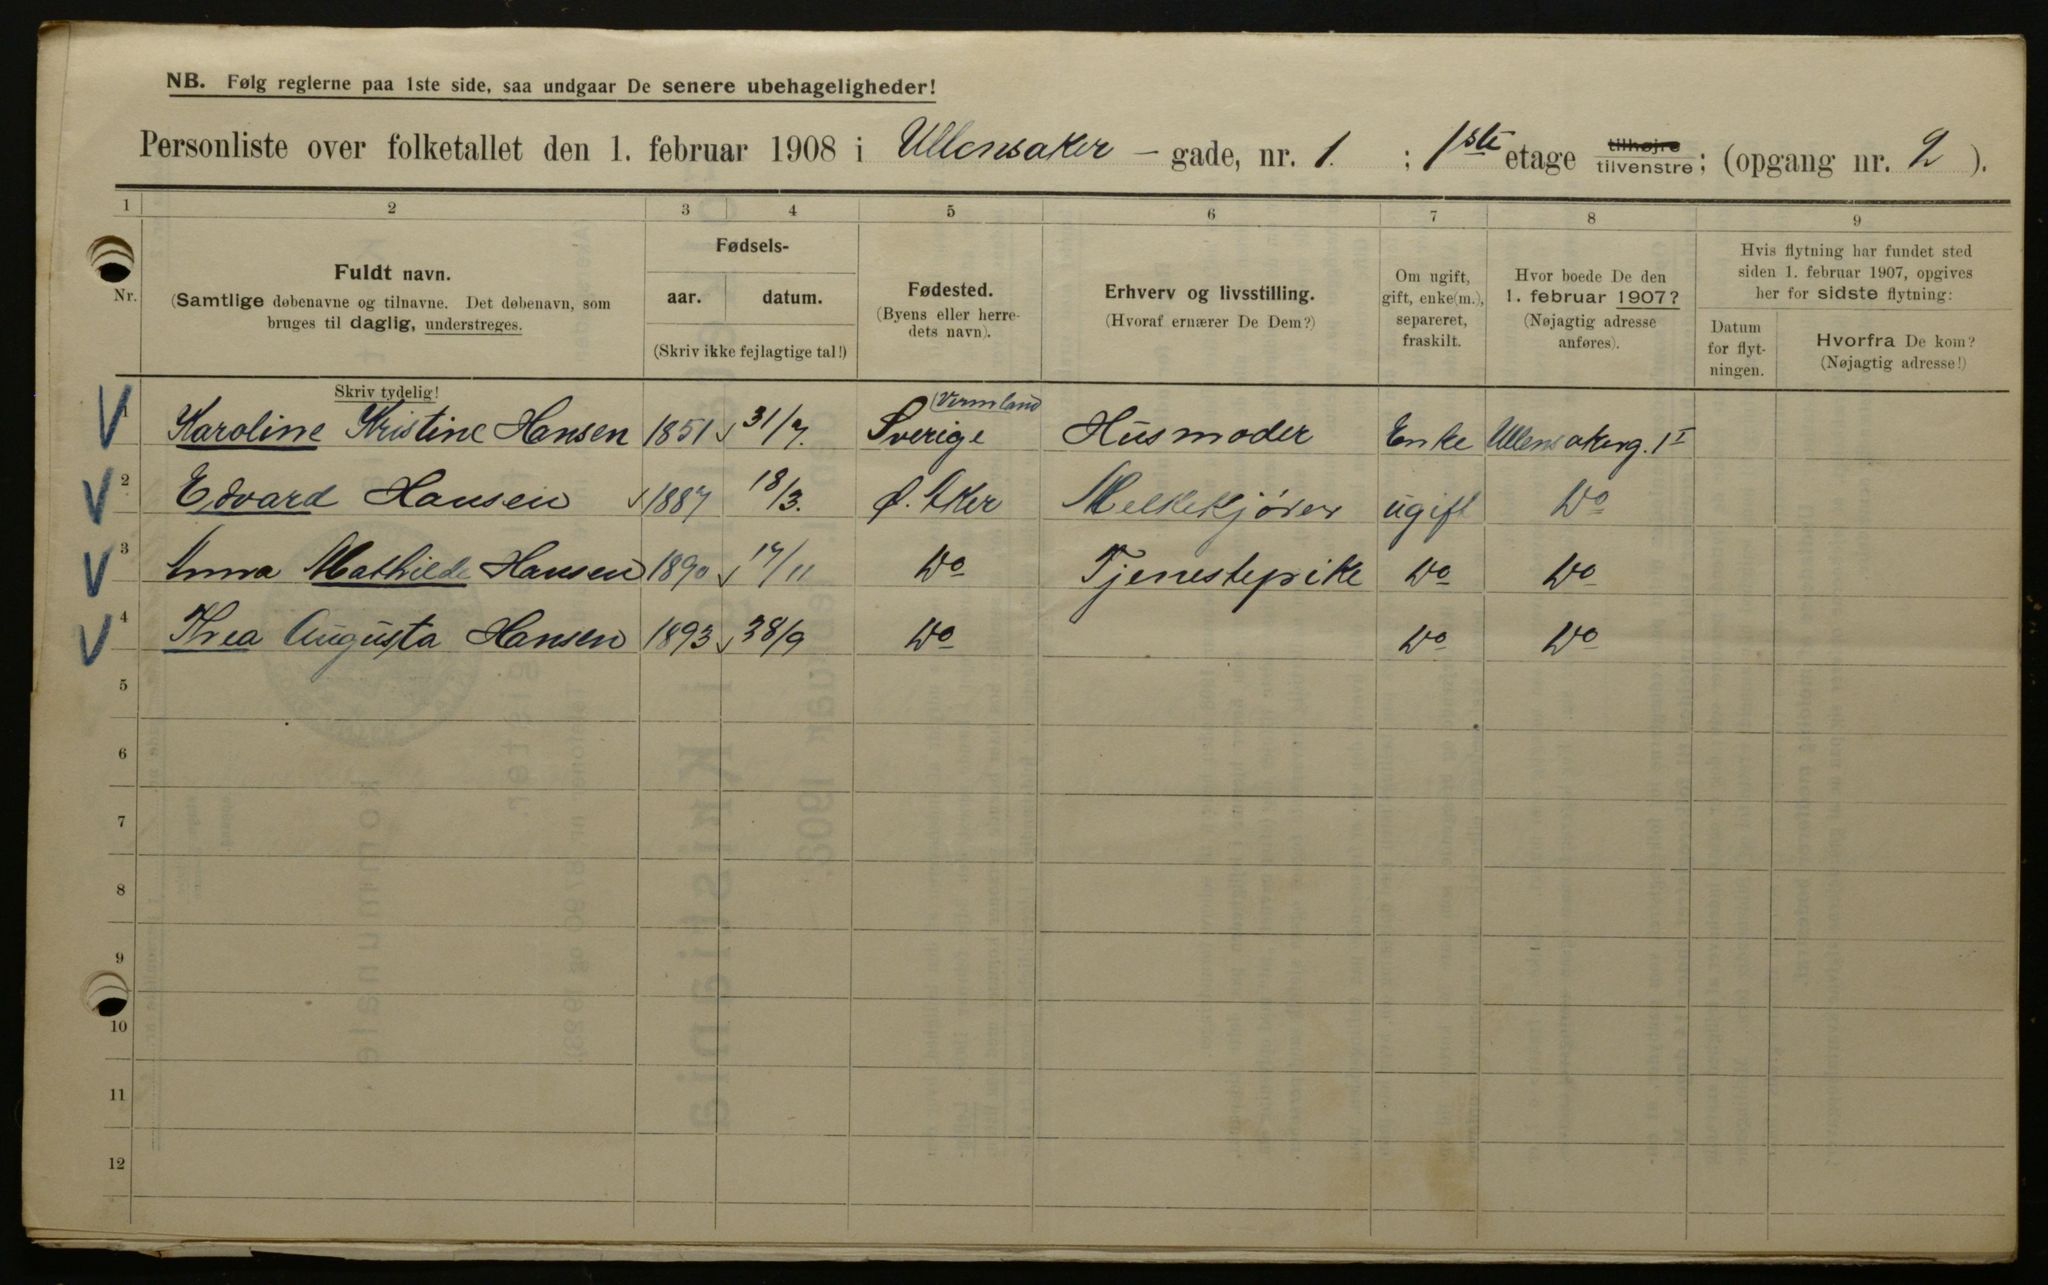 NB. Følg reglerne paa 1ste side, saa undgaar De senere ubehageligheder!
Personliste over folketallet den 1. februar 1908 i Ullensaker – gade, nr. 1. ; 1ste etage tilhøjre tilvenstre; (opgang nr. 2 ).
1 2 3 4 5 6 7 8 9
Nr.
Fuldt navn.
(Samtlige døbenavne og tilnavne. Det døbenavn, som
bruges til daglig, understreges.
Skriv tydelig!
Fødsels-
aar. datum.
(Skriv ikke fejlagtige tal!)
Fødested.
(Byens eller herre-
dets navn).
Erhverv og livsstilling.
(Hvoraf ernærer De Dem?)
Om ugift,
gift, enke(m.),
separeret,
fraskilt.
Hvor boede De den
1. februar 1907?
(Nøjagtig adresse
anføres).
Hvis flytning har fundet sted
siden 1. februar 1907, opgives
her for sidste flytning:
Datum
for flyt-
ningen.
Hvorfra De kom?
(Nøjagtig adresse!)
1 Karoline Kristine Hansen 1851 31/7. Sverige (Vermland Husmoder Enke Ullensakerg. 1 I
2 Edvard Hansen 1887 18/3. Ø. Aker Melkekjører ugift Do
3 Anna Mathilde Hansen 1890 17/11 Do Tjenestepike Do Do
4 Thea Augusta Hansen 1893 28/9 Do Do Do
5
6
7
8
9
10
11
12